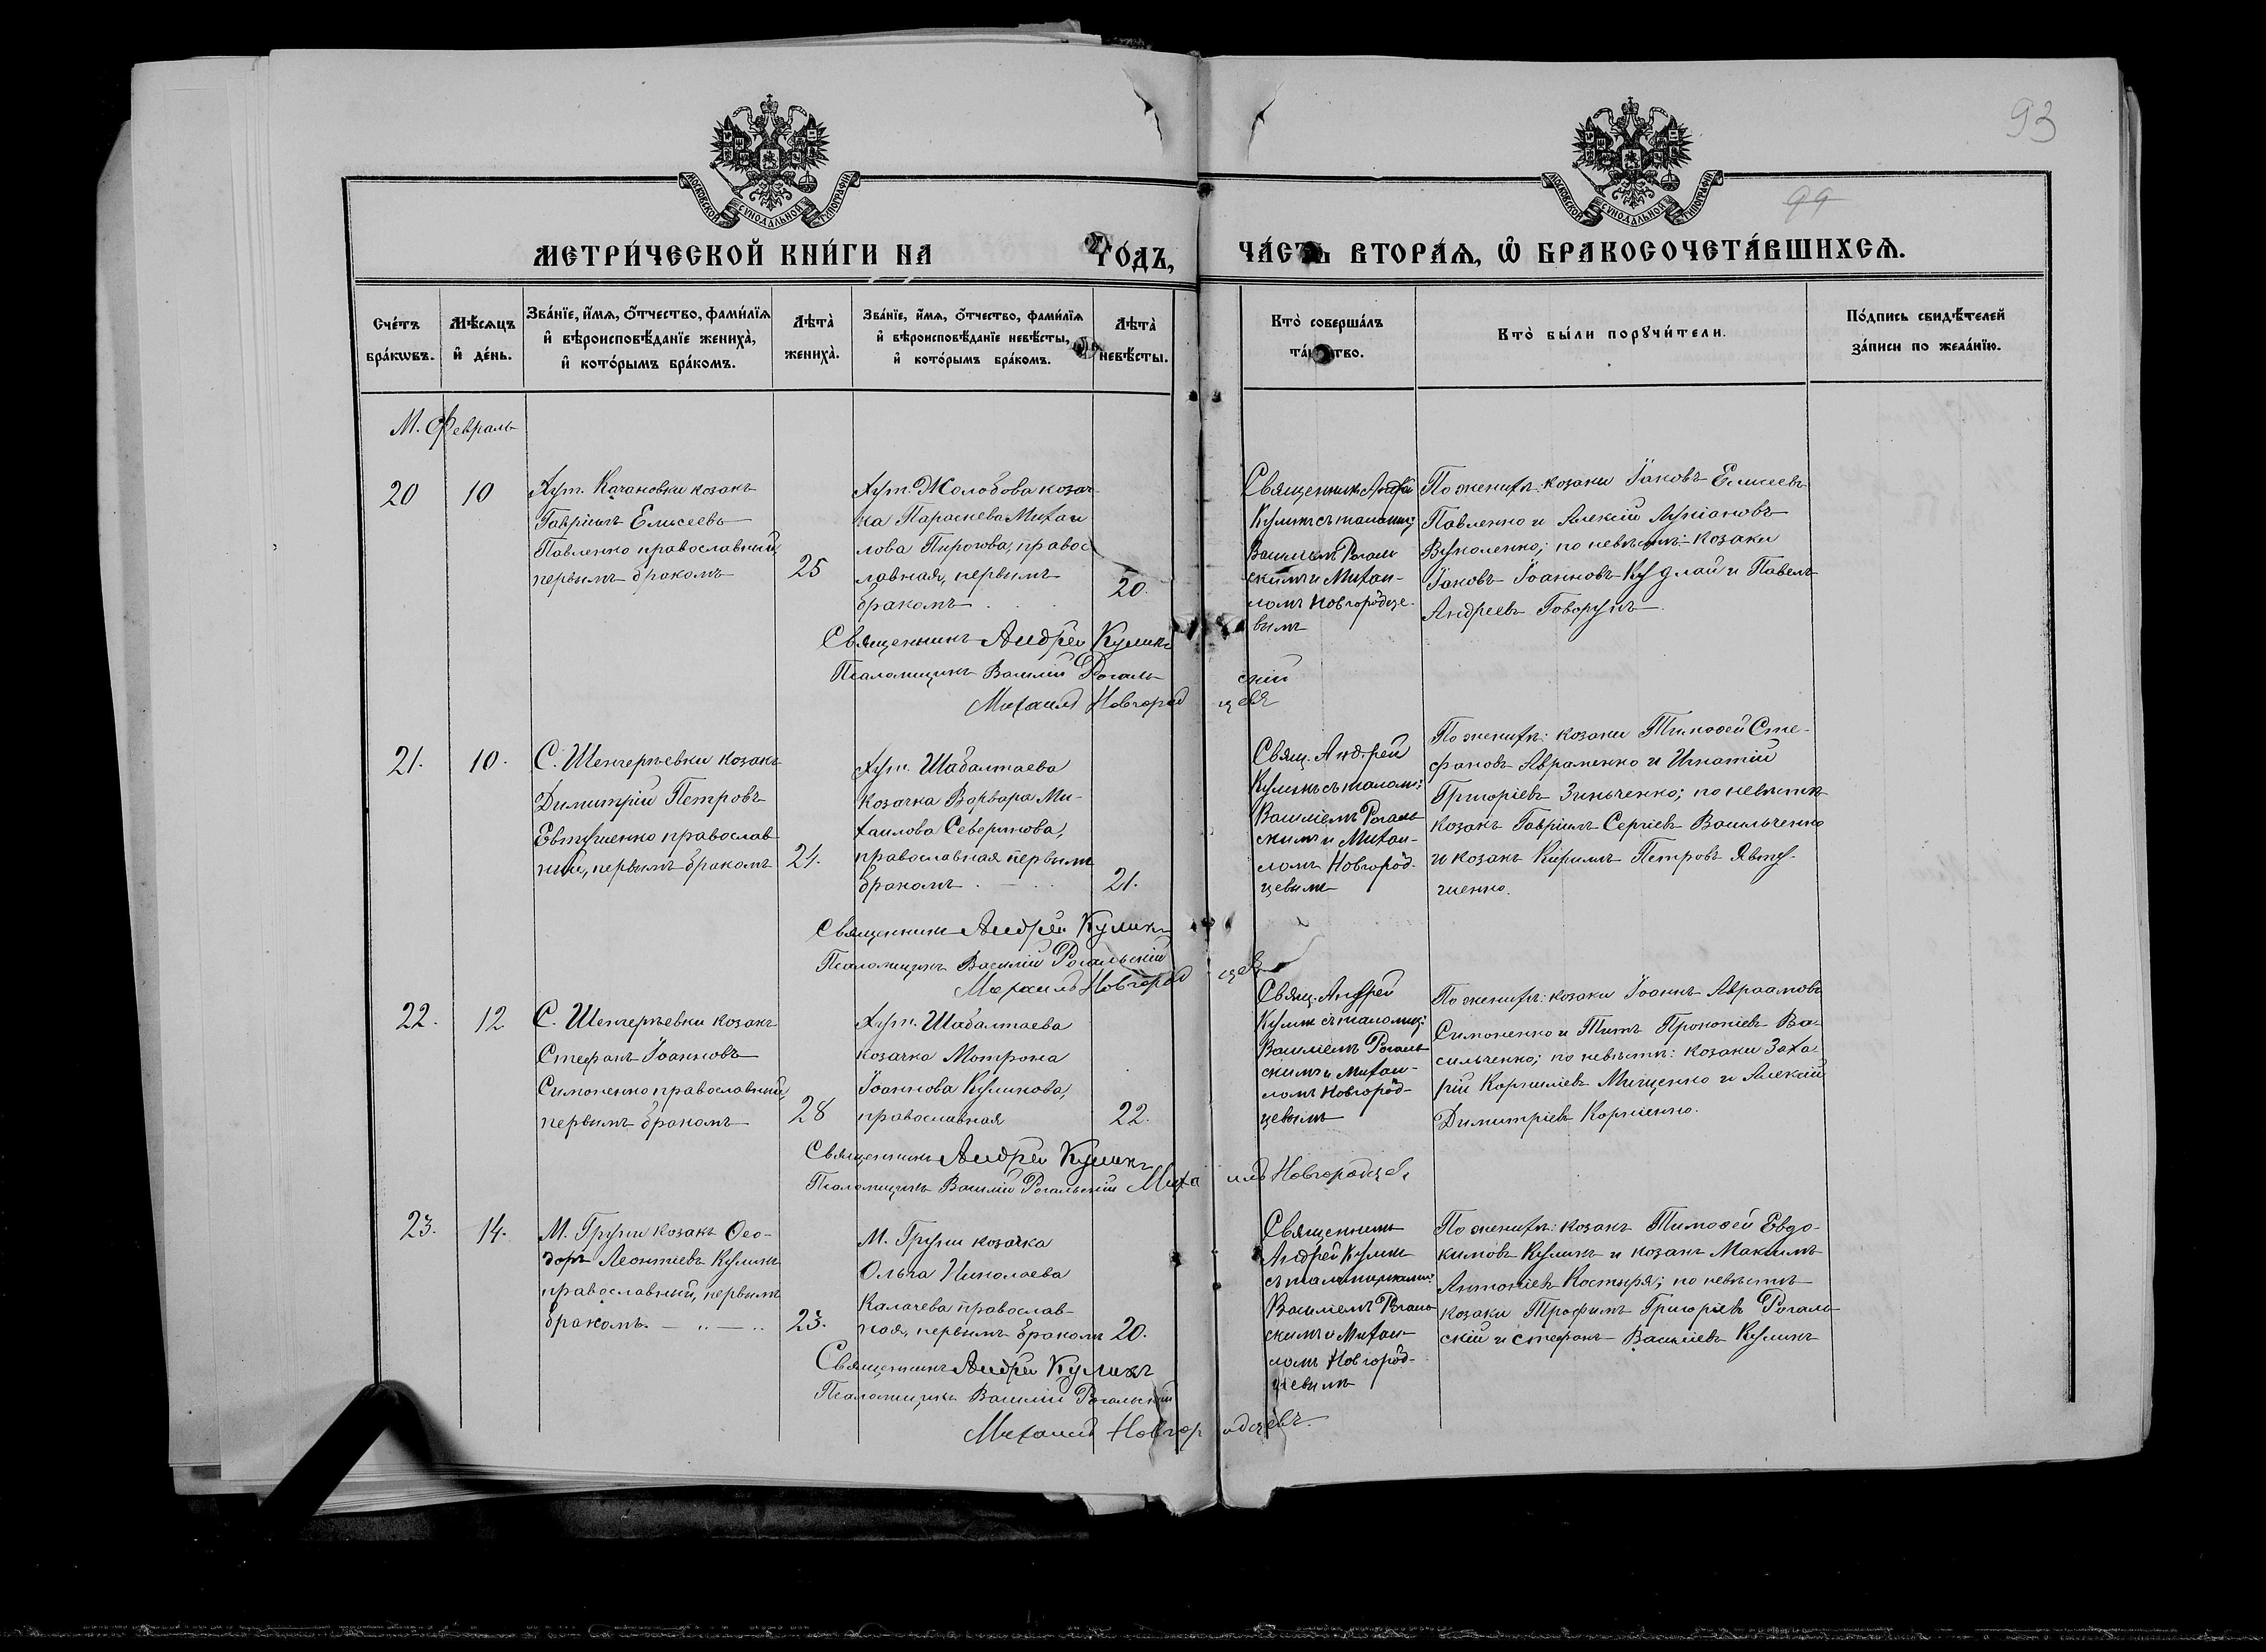 93
99
МОСКОВСКОЙ СѴНОДАЛЬНОЙ ТИПОГРАФІИ
МОСКОВСКОЙ СѴНОДАЛЬНОЙ ТИПОГРАФІИ
МЕТРИ́ЧЕСКОЙ КНИ́ГИ НА ГО́ДЪ,
ЧА́СТЬ ВТОРА́Ѧ, Ѡ҆ БРАКОСОЧЕТА́ВШИХСѦ.
Сче́тъ
бра́кѡвъ.
Мѣ́сѧцъ
и҆ де́нь.
Зва́нїе, и҆́мѧ, о҆́тчество, фами́лїѧ
и҆ вѣроисповѣ́данїе жениха̀,
и҆ кото́рымъ бра́комъ.
Лѣта̀
жениха̀.
Зва́нїе, и҆́мѧ, о҆́тчество, фами́лїѧ
и҆ вѣроисповѣ́данїе невѣ́сты,
и҆ кото́рымъ бра́комъ.
Лѣта̀
невѣ́сты.
Кто̀ соверша́лъ
та́инство.
Кто̀ бы́ли порꙋчи́тели.
По́дпись свидѣ́телей
за́писи по жела́нїю.
М. Февраль
20
10
Хут. Качановки козакъ
Гавріилъ Елисеевъ
Павленко православный,
первымъ бракомъ
25
Хут. Жолобова козач-
ка Параскева Михаи
лова Пирогова, правос
лавная, первымъ
бракомъ
20.
Священникъ Андрей
Куликъ съ псаломщ:
Василіемъ Рогаль
скимъ и Михаи-
ломъ Новгородце-
вымъ
По женихѣ: козаки Іаковъ Елисеевъ
Павленко и Алексій Лукіановъ
Вуколенко; по невѣстѣ: козаки
Іаковъ Іоанновъ Кудлай и Павелъ
Андреевъ Говорунъ
Священникъ Андрей Куликъ
Псаломщикъ Василій Рогальскій
Михаилъ Новгородцевъ
21.
10.
С. Шенгеріевки козакъ
Димитрій Петровъ
Евтушенко православ
ный, первымъ бракомъ
21.
Хут. Шабалтаева
козачка Варвара Ми-
хаилова Северинова,
православная первымъ
бракомъ
21.
Свящ. Андрей
Куликъ съ псаломщ:
Василіемъ Рогаль
скимъ и Михаи-
ломъ Новгород-
цевымъ
По женихѣ: козаки Тимофей Сте-
фановъ Авраменко и Игнатій
Григоріевъ Зинченко; по невѣстѣ
козакъ Гавріилъ Сергіевъ Васильченко
и козакъ Кирилъ Петровъ Явту-
шенко.
Священникъ Андрей Куликъ
Псаломщикъ Василій Рогальскій
Михаилъ Новгородцев
22.
12
С. Шенгеріевки козакъ
Стефанъ Іоанновъ
Симоненко православный,
первымъ бракомъ
28
Хут. Шабалтаева
козачка Мотрона
Іоаннова Куликова,
православная
22.
Свящ. Андрей
Куликъ съ псаломщ:
Василіемъ Рогаль
скимъ и Михаи-
ломъ Новгород-
цевымъ
По женихѣ: козаки Іоаннъ Авраамовъ
Симоненко и Титъ Прокопіевъ Ва-
сильченко; по невѣстѣ: козаки Заха-
рій Корниліевъ Мищенко и Алексій
Димитріевъ Корніенко.
Священникъ Андрей Куликъ
Псаломщикъ Василій Рогальскій Михаилъ Новгородцев
23.
14.
М. Груни козакъ Ѳео-
доръ Леонтіевъ Куликъ
православный, первымъ
бракомъ.
23.
М. Груни козачка
Ольга Николаева
Калачева православ-
ная, первымъ бракомъ
20.
Священникъ
Андрей Куликъ
съ псаломщиками:
Василіемъ Рогаль
скимъ и Михаи-
ломъ Новгород-
цевымъ
По женихѣ: козакъ Тимофей Евдо-
кимовъ Куликъ и козакъ Максимъ
Антоніевъ Костыря; по невѣстѣ
козаки Трофимъ Григоріевъ Рогаль
скій и Стефанъ Василіевъ Куликъ
Священникъ Андрей Куликъ
Псаломщикъ Василій Рогальскій
Михаилъ Новгородцевъ.